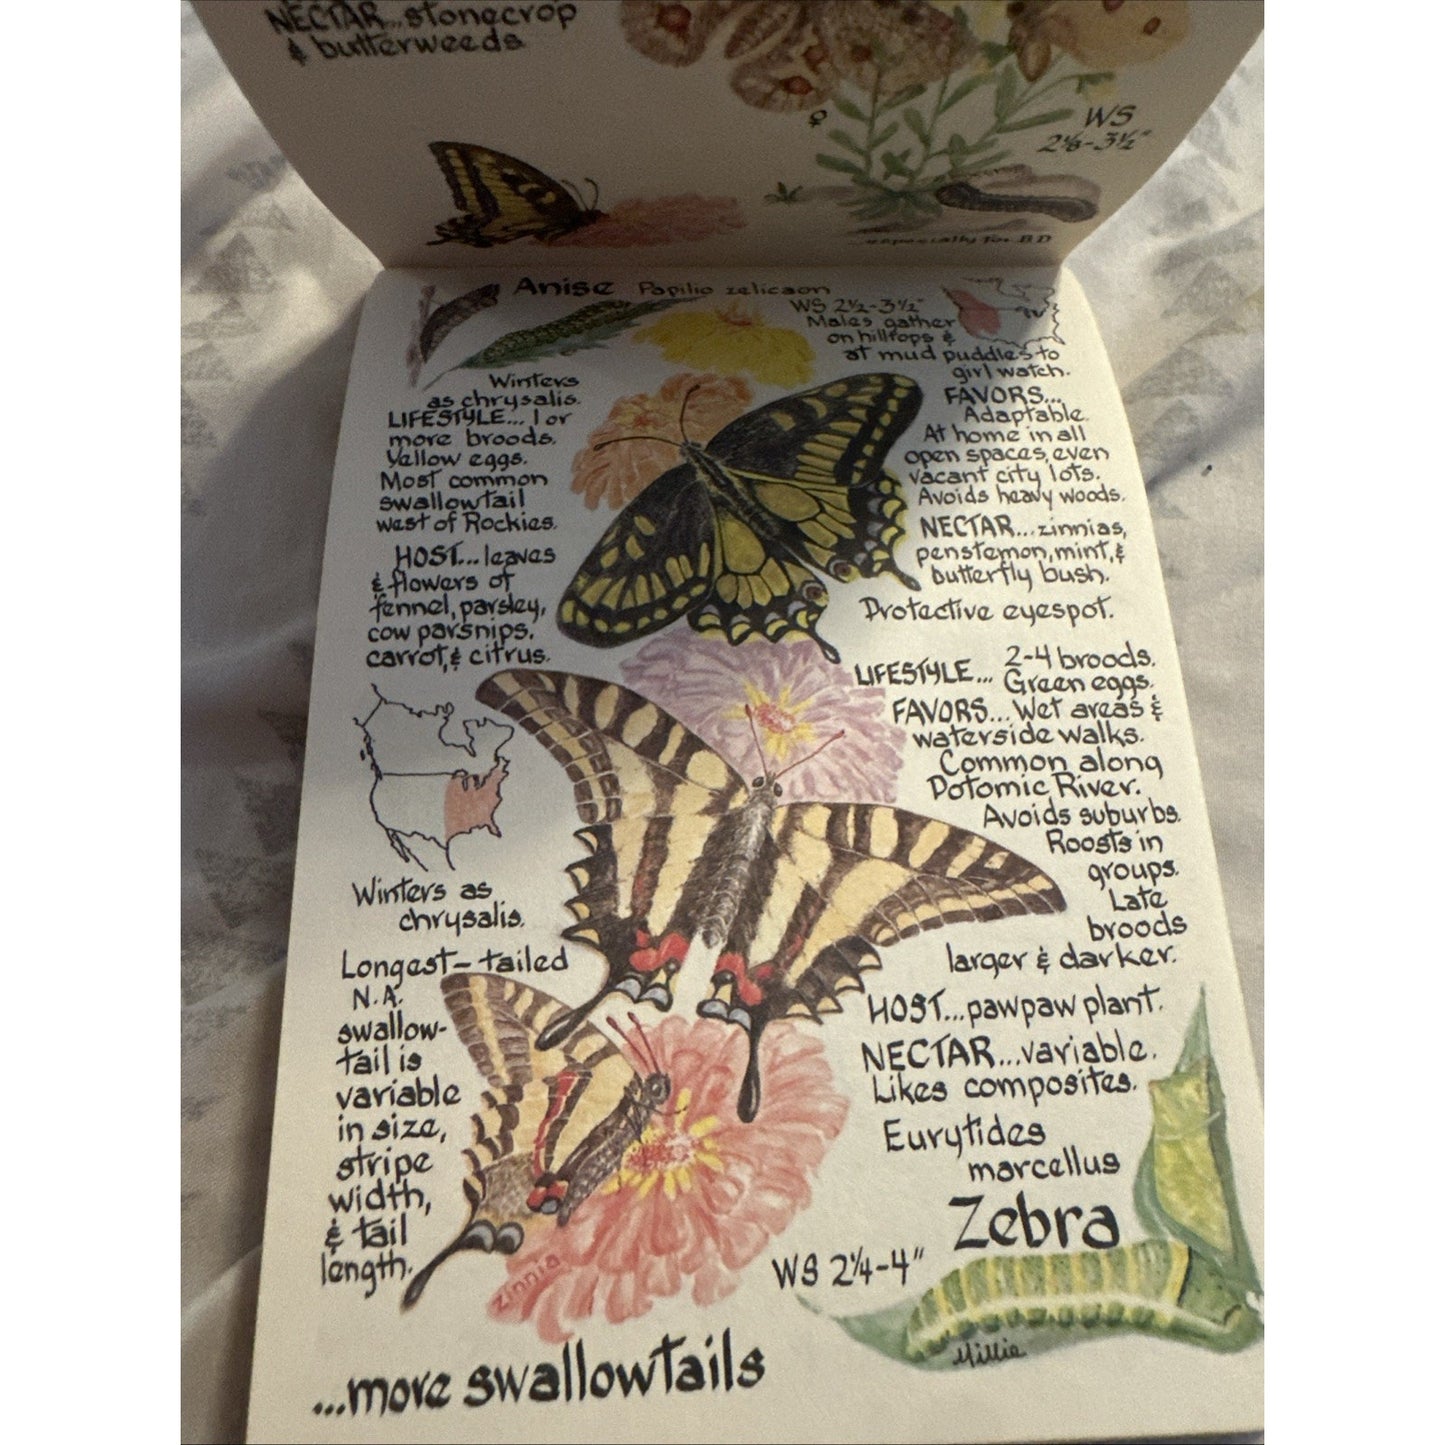 NECTAR...stonecrop
& butterweeds
♀
WS
2⅛-3½"
...especially for BD
Anise Papilio zelicaon
WS 2½-3½"
Males gather
on hilltops &
at mud puddles to
girl watch.
Winters
as chrysalis.
LIFESTYLE... 1 or
more broods.
Yellow eggs.
Most common
swallowtail
west of Rockies.
HOST...leaves
& flowers of
fennel, parsley,
cow parsnips.
carrot, & citrus.
FAVORS...
Adaptable.
At home in all
open spaces, even
vacant city lots.
Avoids heavy woods.
NECTAR...zinnias,
penstemon, mint, &
butterfly bush.
Protective eyespot.
LIFESTYLE... 2-4 broods.
Green eggs.
FAVORS...Wet areas &
waterside walks.
Common along
Potomic River.
Avoids suburbs.
Roosts in
groups.
Late
broods
larger & darker.
Winters as
chrysalis.
Longest-tailed
N.A.
swallow-
tail is
variable
in size,
stripe
width,
& tail
length.
HOST...pawpaw plant.
NECTAR...variable.
Likes composites.
Eurytides
marcellus
Zebra
WS 2¼-4"
zinnia
Millie
...more swallowtails